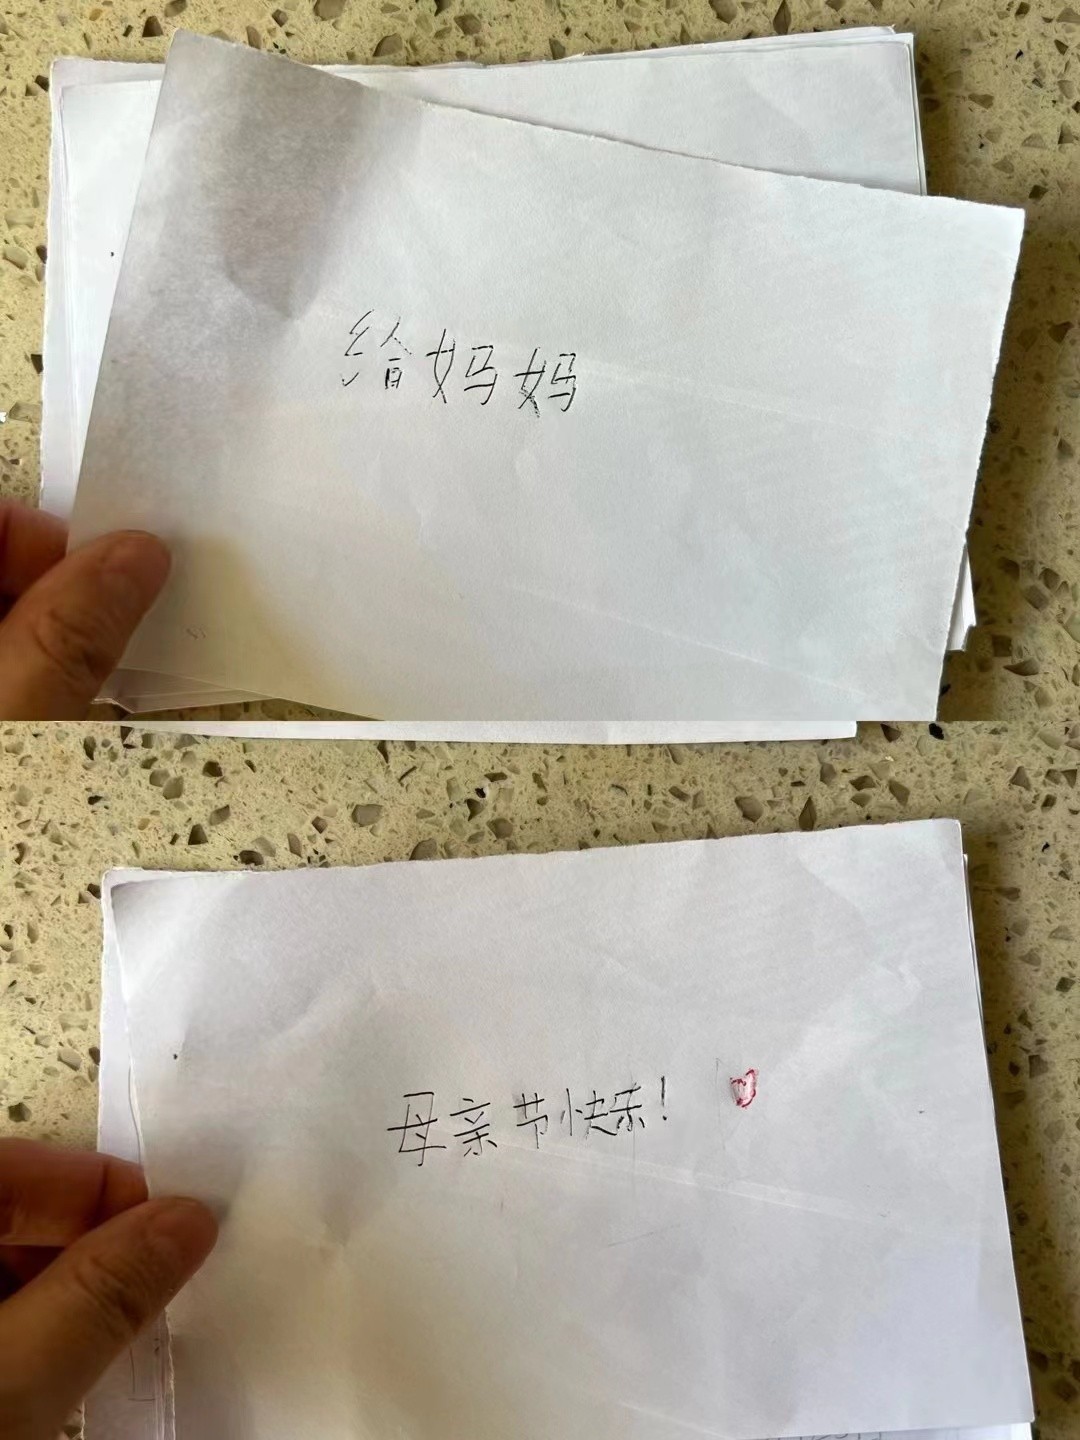 给妈妈
母亲节快乐!